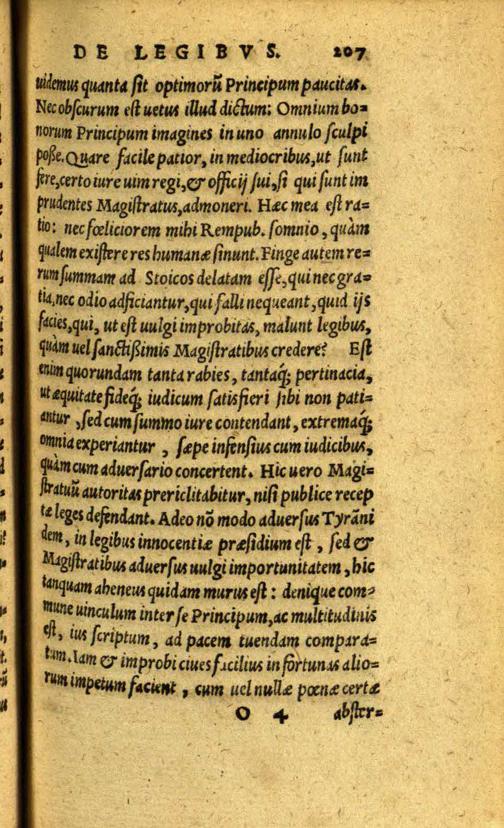 DE LEGIBVS. 207
uidemus quanta sit optimorũ Principum paucitas.
Nec obscurum est uetus illud dictum: Omnium bo=
norum Principum imagines in uno annulo sculpi
poße. Quare facile patior, in mediocribus, ut sunt
fere, certo iure uim regi, & officij sui, si qui sunt im
prudentes Magistratus, admoneri. Hæc mea est ra=
tio: nec fœliciorem mihi Rempub. somnio, quàm
qualem existere res humanæ sinunt. Finge autem re=
rum summam ad Stoicos delatam esse, qui nec gra=
tia, nec odio adficiantur, qui falli nequeant, quid ijs
facies, qui, ut est uulgi improbitas, malunt legibus,
quàm uel sanctißimis Magistratibus credere? Est
enim quorundam tanta rabies, tantaq; pertinacia,
ut æquitate fideq; iudicum satisfieri sibi non pati=
antur, sed cum summo iure contendant, extremaq;
omnia experiantur, sæpe infensius cum iudicibus,
quàm cum aduersario concertent. Hic uero Magi=
stratuũ autoritas prericlitabitur, nisi publice recep
tæ leges defendant. Adeo nõ modo aduersus Tyrãni
dem, in legibus innocentiæ præsidium est, sed &
Magistratibus aduersus uulgi importunitatem, hic
tanquam aheneus quidam murus est: denique com=
mune uinculum inter se Principum, ac multitudinis
est, ius scriptum, ad pacem tuendam compara=
tum. Iam & improbi ciues facilius in fortunas alio=
rum impetum facient, cum uel nullæ pœnæ certæ
O 4 abster=